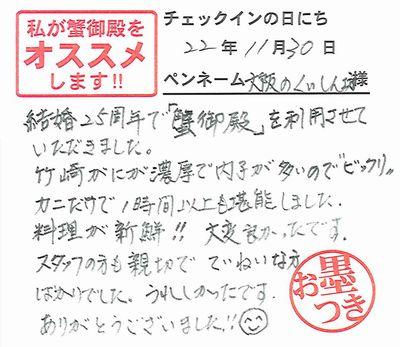 私が蟹御殿を
オススメ
します!!
チェックインの日にち
22年11月30日
ペンネーム大阪のくいしん坊様
結婚25周年で「蟹御殿」を利用させて
いただきました。
竹崎がにが濃厚で内子が多いので"ビックリ"
カニだけで1時間以上も堪能しました。
料理が新鮮!! 大変良かったです。
スタッフの方も親切で ていねいな方
ばかりでした。うれしかったです。
ありがとうございました!!
お墨
つき